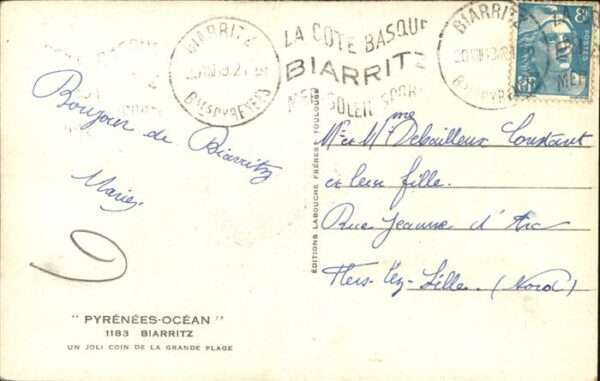 BIARRITZ
BSES PYRENEES
LA COTE BASQUE
BIARRITZ
MER SOLEIL SPORTS
BIARRITZ
Bonjour de Biarritz
Marie
Mr et Mme Debailleux Constant
et leur fille.
Rue Jeanne d'Arc
Flers-lez-Lille. (Nord)
EDITIONS LABOUCHE FRÈRES TOULOUSE
" PYRÉNÉES-OCÉAN "
1183 BIARRITZ
UN JOLI COIN DE LA GRANDE PLAGE